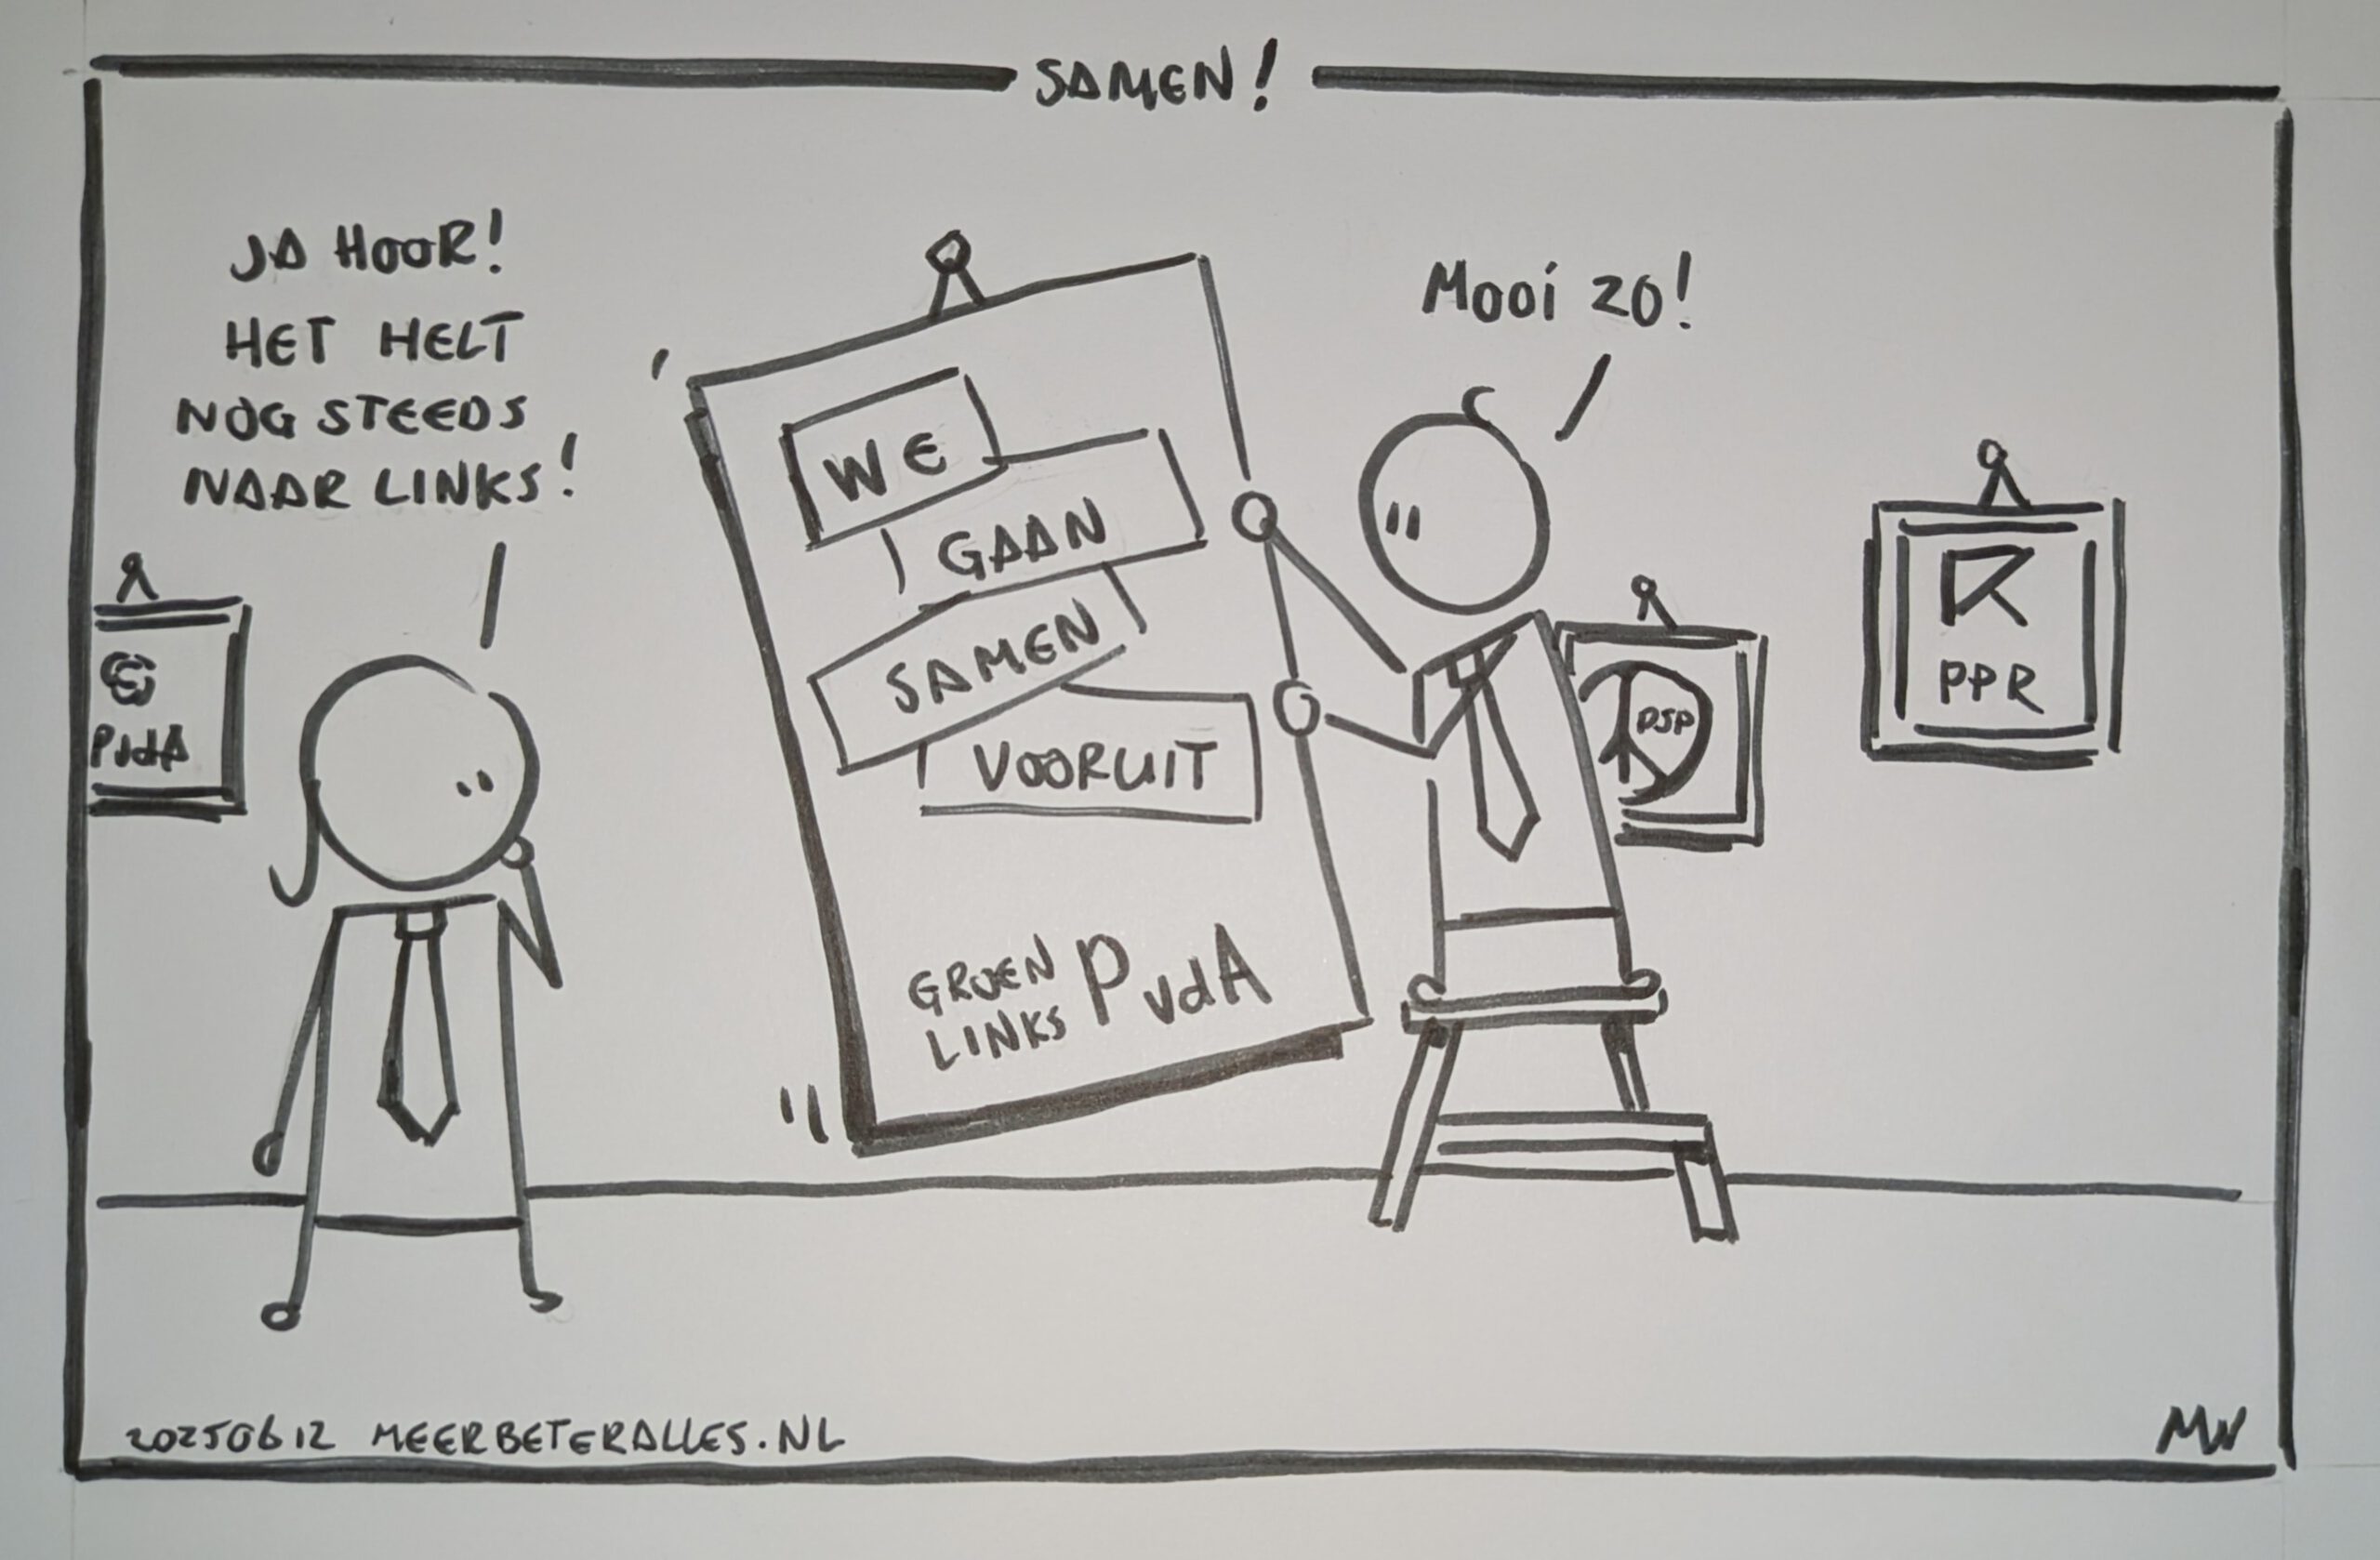 SAMEN!
JA HOOR!
HET HELT
NOG STEEDS
NAAR LINKS!
Mooi zo!
WE
GAAN
SAMEN
VOORUIT
GROEN
LINKS
PvdA
PvdA
PSP
PPR
20250612 MEERBETERALLES.NL
MW